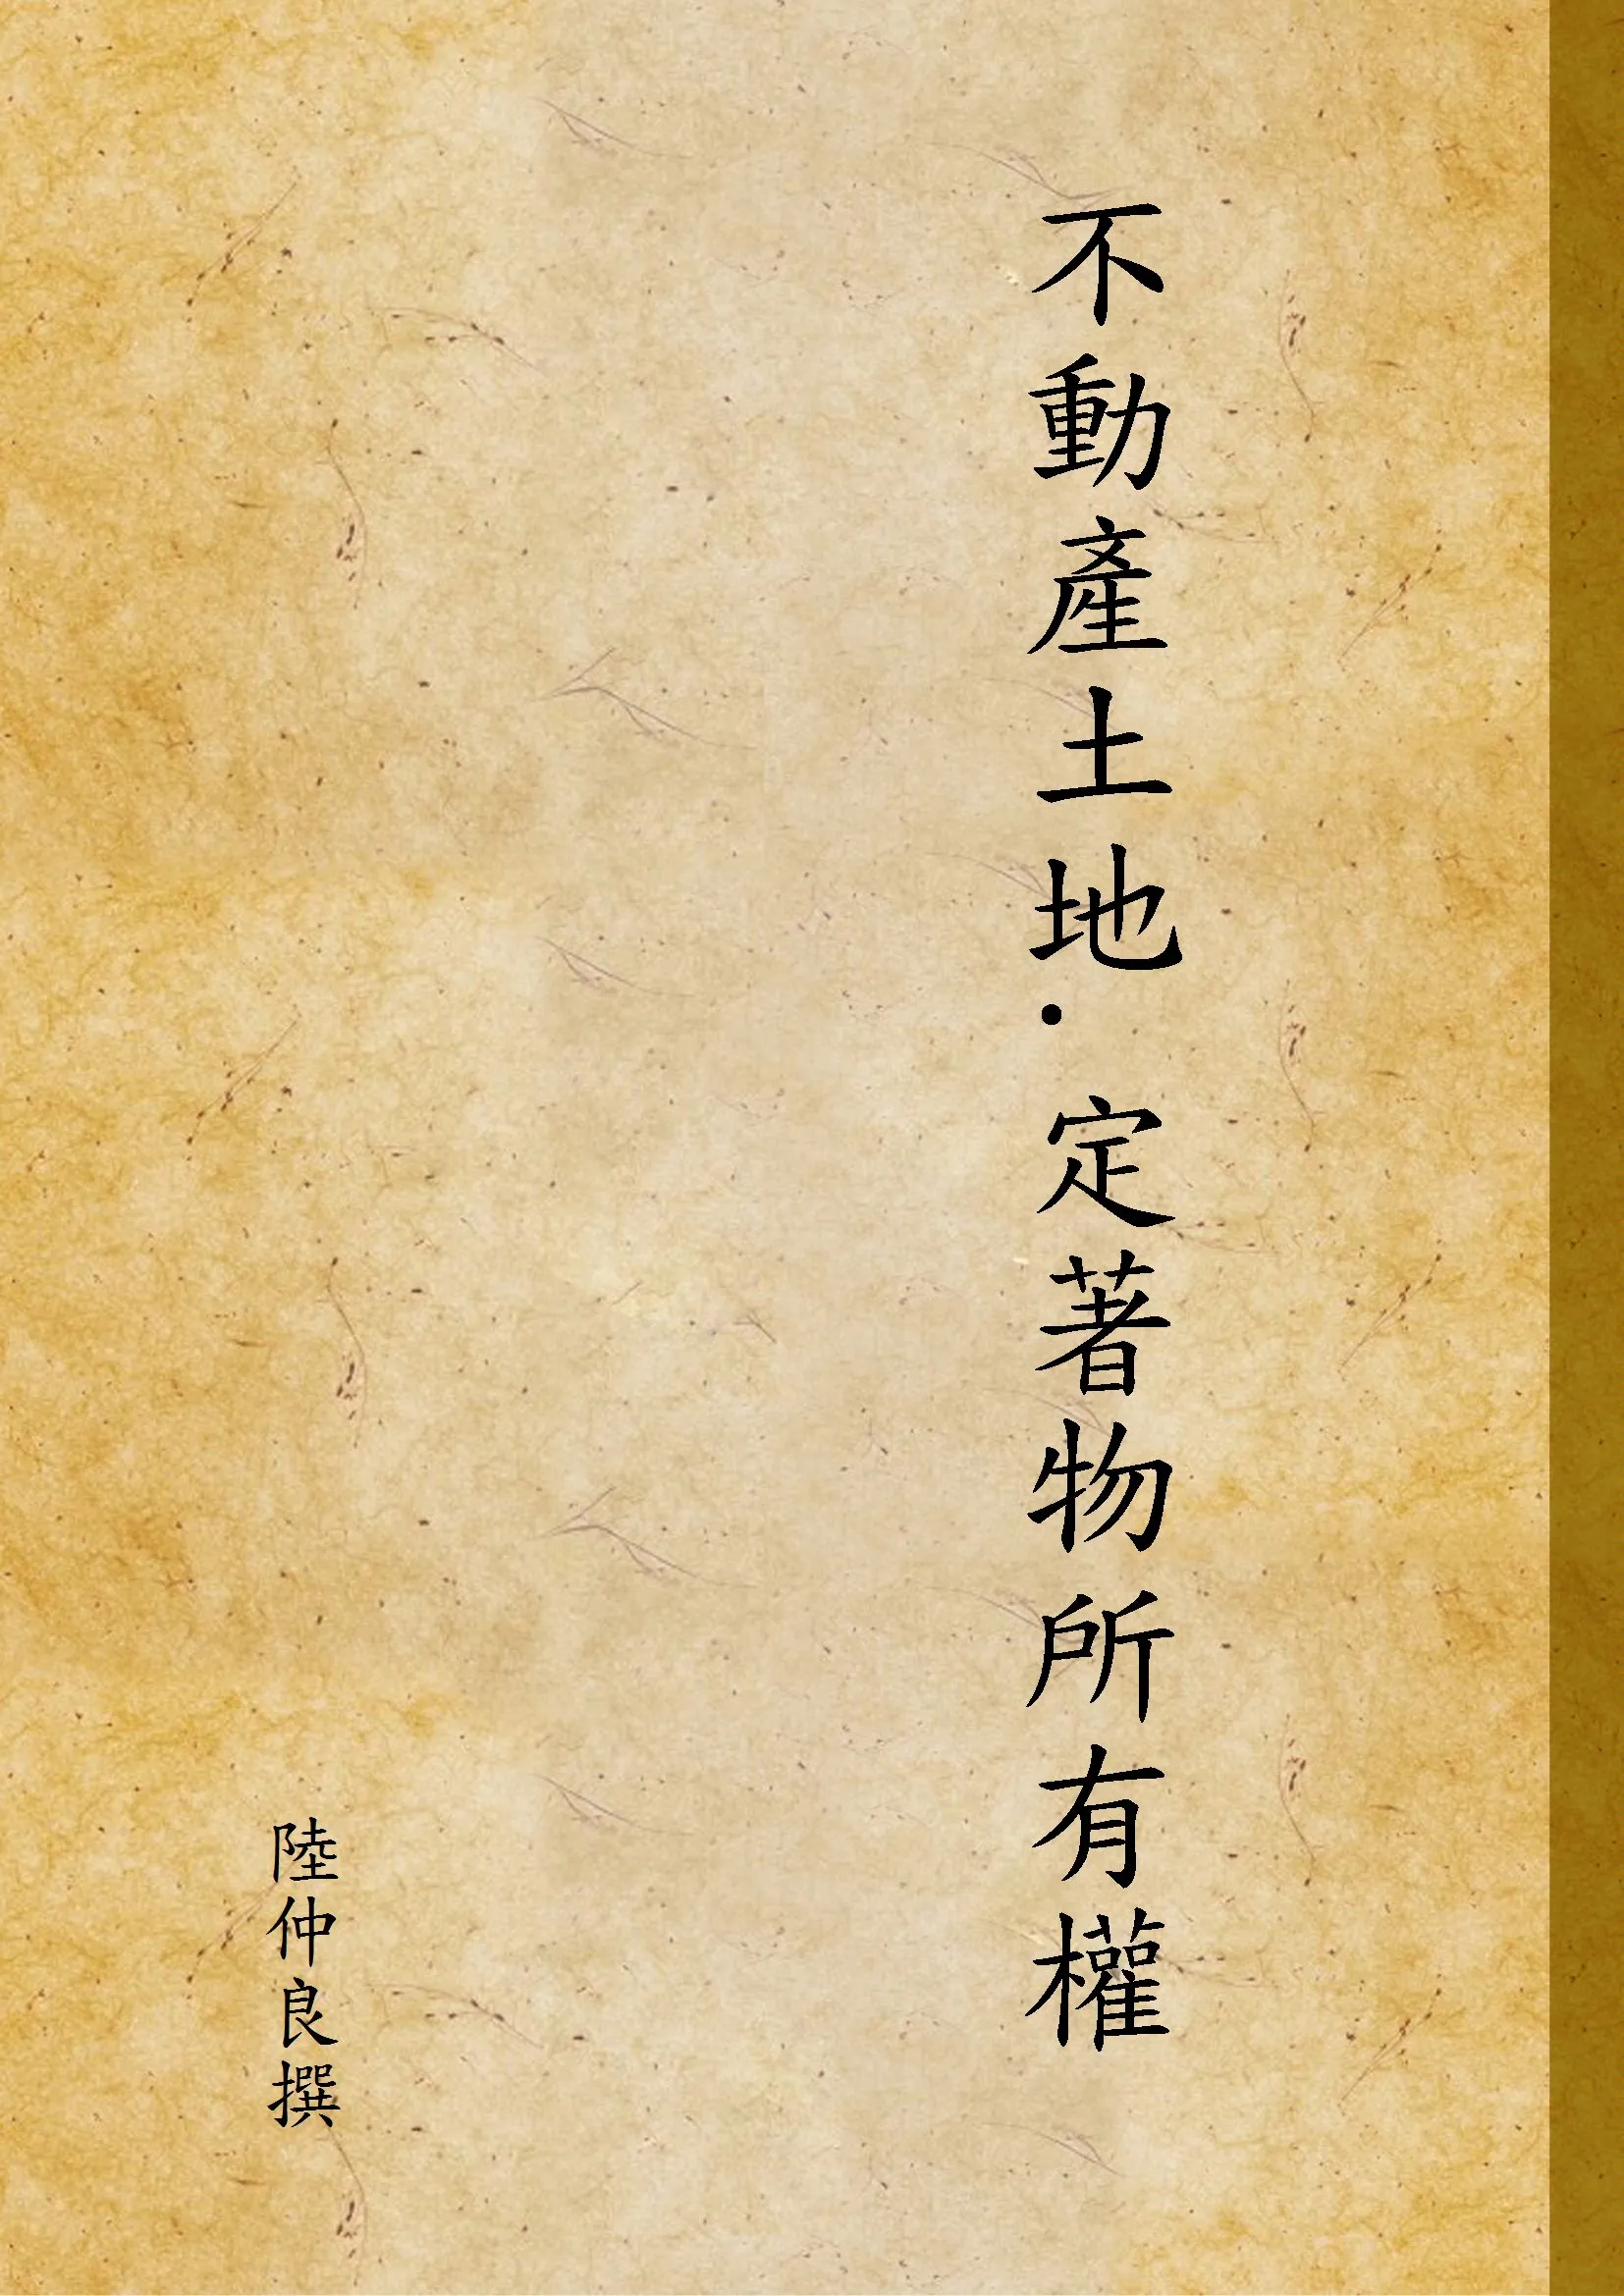 不動產土地·定著物所有權
陸仲良撰